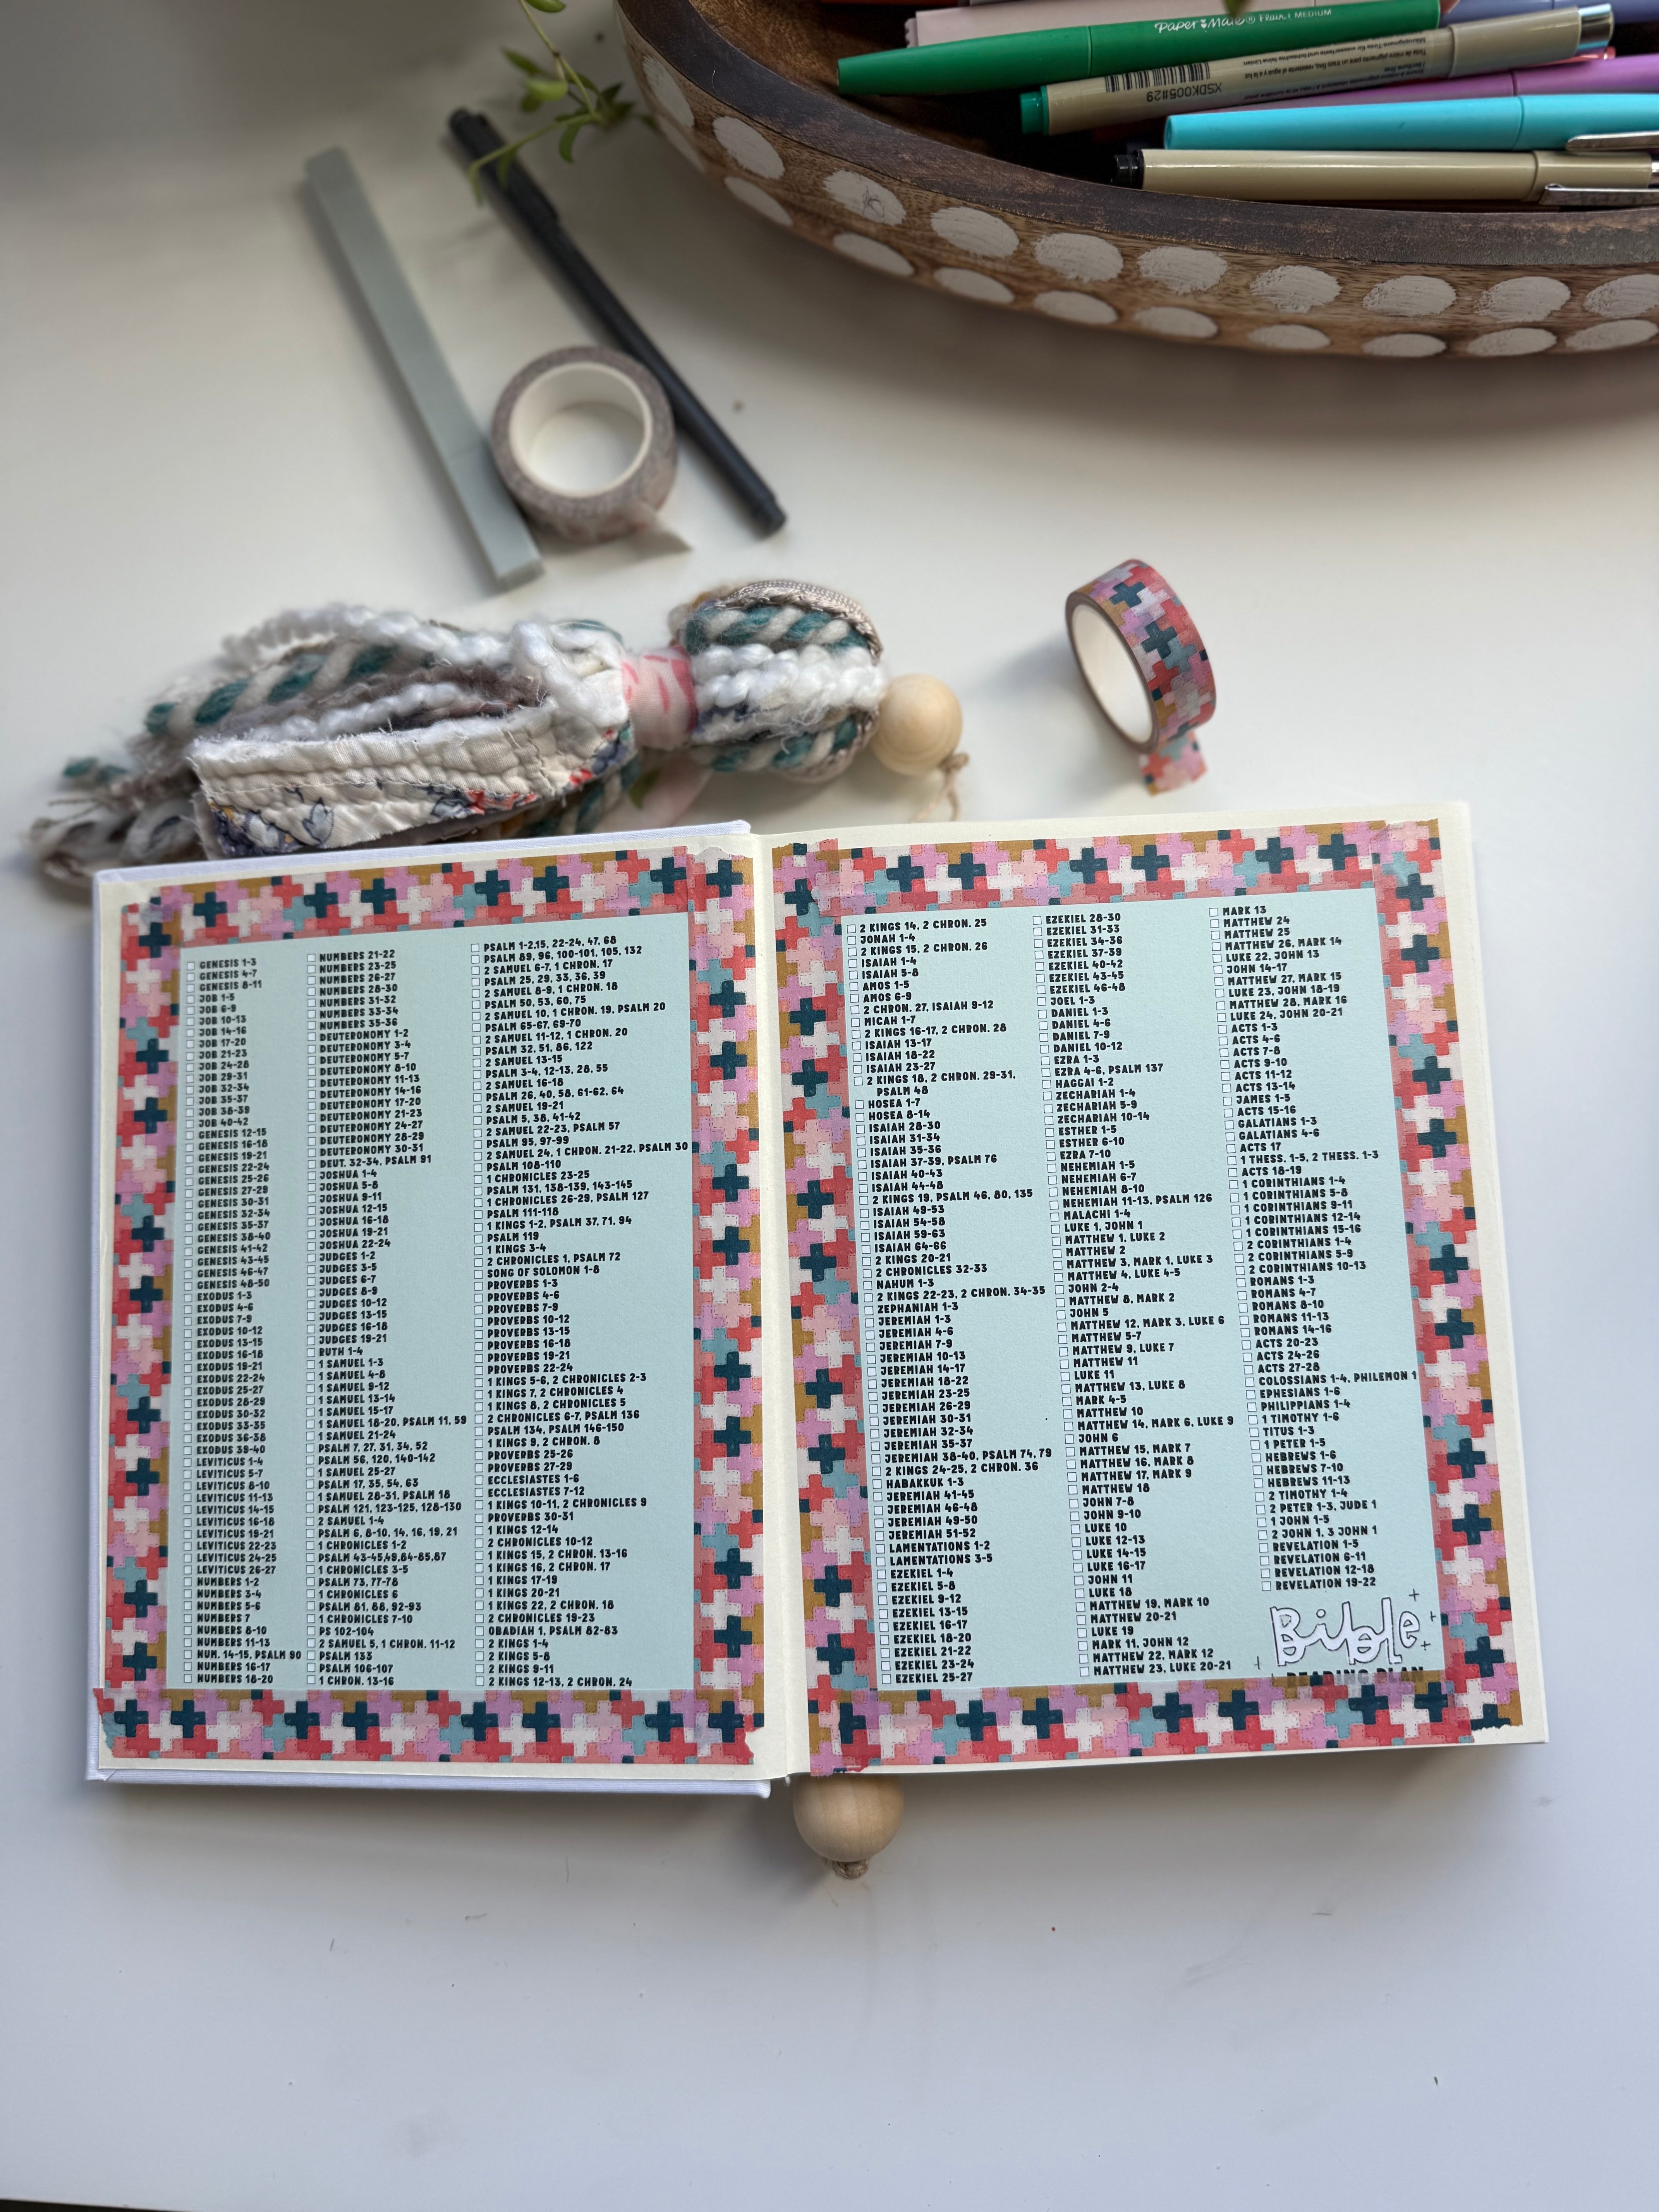 Paper Mate® Flair! MEDIUM
XSDK005#29
GENESIS 1-3
GENESIS 4-7
GENESIS 8-11
JOB 1-5
JOB 6-9
JOB 10-13
JOB 14-16
JOB 17-20
JOB 21-23
JOB 24-28
JOB 29-31
JOB 32-34
JOB 35-37
JOB 38-39
JOB 40-42
GENESIS 12-15
GENESIS 16-18
GENESIS 19-21
GENESIS 22-24
GENESIS 25-26
GENESIS 27-29
GENESIS 30-31
GENESIS 32-34
GENESIS 35-37
GENESIS 38-40
GENESIS 41-42
GENESIS 43-45
GENESIS 46-47
GENESIS 48-50
EXODUS 1-3
EXODUS 4-6
EXODUS 7-9
EXODUS 10-12
EXODUS 13-15
EXODUS 16-18
EXODUS 19-21
EXODUS 22-24
EXODUS 25-27
EXODUS 28-29
EXODUS 30-32
EXODUS 33-35
EXODUS 36-38
EXODUS 39-40
LEVITICUS 1-4
LEVITICUS 5-7
LEVITICUS 8-10
LEVITICUS 11-13
LEVITICUS 14-15
LEVITICUS 16-18
LEVITICUS 19-21
LEVITICUS 22-23
LEVITICUS 24-25
LEVITICUS 26-27
NUMBERS 1-2
NUMBERS 3-4
NUMBERS 5-6
NUMBERS 7
NUMBERS 8-10
NUMBERS 11-13
NUM. 14-15, PSALM 90
NUMBERS 16-17
NUMBERS 18-20
NUMBERS 21-22
NUMBERS 23-25
NUMBERS 26-27
NUMBERS 28-30
NUMBERS 31-32
NUMBERS 33-34
NUMBERS 35-36
DEUTERONOMY 1-2
DEUTERONOMY 3-4
DEUTERONOMY 5-7
DEUTERONOMY 8-10
DEUTERONOMY 11-13
DEUTERONOMY 14-16
DEUTERONOMY 17-20
DEUTERONOMY 21-23
DEUTERONOMY 24-27
DEUTERONOMY 28-29
DEUTERONOMY 30-31
DEUT. 32-34, PSALM 91
JOSHUA 1-4
JOSHUA 5-8
JOSHUA 9-11
JOSHUA 12-15
JOSHUA 16-18
JOSHUA 19-21
JOSHUA 22-24
JUDGES 1-2
JUDGES 3-5
JUDGES 6-7
JUDGES 8-9
JUDGES 10-12
JUDGES 13-15
JUDGES 16-18
JUDGES 19-21
RUTH 1-4
1 SAMUEL 1-3
1 SAMUEL 4-8
1 SAMUEL 9-12
1 SAMUEL 13-14
1 SAMUEL 15-17
1 SAMUEL 18-20, PSALM 11, 59
1 SAMUEL 21-24
PSALM 7, 27, 31, 34, 52
PSALM 56, 120, 140-142
1 SAMUEL 25-27
PSALM 17, 35, 54, 63
1 SAMUEL 28-31, PSALM 18
PSALM 121, 123-125, 128-130
2 SAMUEL 1-4
PSALM 6, 8-10, 14, 16, 19, 21
1 CHRONICLES 1-2
PSALM 43-45,49,84-85,87
1 CHRONICLES 3-5
PSALM 73, 77-78
1 CHRONICLES 6
PSALM 81, 88, 92-93
1 CHRONICLES 7-10
PS 102-104
2 SAMUEL 5, 1 CHRON. 11-12
PSALM 133
PSALM 106-107
1 CHRON. 13-16
PSALM 1-2,15, 22-24, 47, 68
PSALM 89, 96, 100-101, 105, 132
2 SAMUEL 6-7, 1 CHRON. 17
PSALM 25, 29, 33, 36, 39
2 SAMUEL 8-9, 1 CHRON. 18
PSALM 50, 53, 60, 75
2 SAMUEL 10, 1 CHRON. 19, PSALM 20
PSALM 65-67, 69-70
2 SAMUEL 11-12, 1 CHRON. 20
PSALM 32, 51, 86, 122
2 SAMUEL 13-15
PSALM 3-4, 12-13, 28, 55
2 SAMUEL 16-18
PSALM 26, 40, 58, 61-62, 64
2 SAMUEL 19-21
PSALM 5, 38, 41-42
2 SAMUEL 22-23, PSALM 57
PSALM 95, 97-99
2 SAMUEL 24, 1 CHRON. 21-22, PSALM 30
PSALM 108-110
1 CHRONICLES 23-25
PSALM 131, 138-139, 143-145
1 CHRONICLES 26-29, PSALM 127
PSALM 111-118
1 KINGS 1-2, PSALM 37, 71, 94
PSALM 119
1 KINGS 3-4
2 CHRONICLES 1, PSALM 72
SONG OF SOLOMON 1-8
PROVERBS 1-3
PROVERBS 4-6
PROVERBS 7-9
PROVERBS 10-12
PROVERBS 13-15
PROVERBS 16-18
PROVERBS 19-21
PROVERBS 22-24
1 KINGS 5-6, 2 CHRONICLES 2-3
1 KINGS 7, 2 CHRONICLES 4
1 KINGS 8, 2 CHRONICLES 5
2 CHRONICLES 6-7, PSALM 136
PSALM 134, PSALM 146-150
1 KINGS 9, 2 CHRON. 8
PROVERBS 25-26
PROVERBS 27-29
ECCLESIASTES 1-6
ECCLESIASTES 7-12
1 KINGS 10-11, 2 CHRONICLES 9
PROVERBS 30-31
1 KINGS 12-14
2 CHRONICLES 10-12
1 KINGS 15, 2 CHRON. 13-16
1 KINGS 16, 2 CHRON. 17
1 KINGS 17-19
1 KINGS 20-21
1 KINGS 22, 2 CHRON. 18
2 CHRONICLES 19-23
OBADIAH 1, PSALM 82-83
2 KINGS 1-4
2 KINGS 5-8
2 KINGS 9-11
2 KINGS 12-13, 2 CHRON. 24
2 KINGS 14, 2 CHRON. 25
JONAH 1-4
2 KINGS 15, 2 CHRON. 26
ISAIAH 1-4
ISAIAH 5-8
AMOS 1-5
AMOS 6-9
2 CHRON. 27, ISAIAH 9-12
MICAH 1-7
2 KINGS 16-17, 2 CHRON. 28
ISAIAH 13-17
ISAIAH 18-22
ISAIAH 23-27
2 KINGS 18, 2 CHRON. 29-31,
PSALM 48
HOSEA 1-7
HOSEA 8-14
ISAIAH 28-30
ISAIAH 31-34
ISAIAH 35-36
ISAIAH 37-39, PSALM 76
ISAIAH 40-43
ISAIAH 44-48
2 KINGS 19, PSALM 46, 80, 135
ISAIAH 49-53
ISAIAH 54-58
ISAIAH 59-63
ISAIAH 64-66
2 KINGS 20-21
2 CHRONICLES 32-33
NAHUM 1-3
2 KINGS 22-23, 2 CHRON. 34-35
ZEPHANIAH 1-3
JEREMIAH 1-3
JEREMIAH 4-6
JEREMIAH 7-9
JEREMIAH 10-13
JEREMIAH 14-17
JEREMIAH 18-22
JEREMIAH 23-25
JEREMIAH 26-29
JEREMIAH 30-31
JEREMIAH 32-34
JEREMIAH 35-37
JEREMIAH 38-40, PSALM 74, 79
2 KINGS 24-25, 2 CHRON. 36
HABAKKUK 1-3
JEREMIAH 41-45
JEREMIAH 46-48
JEREMIAH 49-50
JEREMIAH 51-52
LAMENTATIONS 1-2
LAMENTATIONS 3-5
EZEKIEL 1-4
EZEKIEL 5-8
EZEKIEL 9-12
EZEKIEL 13-15
EZEKIEL 16-17
EZEKIEL 18-20
EZEKIEL 21-22
EZEKIEL 23-24
EZEKIEL 25-27
EZEKIEL 28-30
EZEKIEL 31-33
EZEKIEL 34-36
EZEKIEL 37-39
EZEKIEL 40-42
EZEKIEL 43-45
EZEKIEL 46-48
JOEL 1-3
DANIEL 1-3
DANIEL 4-6
DANIEL 7-9
DANIEL 10-12
EZRA 1-3
EZRA 4-6, PSALM 137
HAGGAI 1-2
ZECHARIAH 1-4
ZECHARIAH 5-9
ZECHARIAH 10-14
ESTHER 1-5
ESTHER 6-10
EZRA 7-10
NEHEMIAH 1-5
NEHEMIAH 6-7
NEHEMIAH 8-10
NEHEMIAH 11-13, PSALM 126
MALACHI 1-4
LUKE 1, JOHN 1
MATTHEW 1, LUKE 2
MATTHEW 2
MATTHEW 3, MARK 1, LUKE 3
MATTHEW 4, LUKE 4-5
JOHN 2-4
MATTHEW 8, MARK 2
JOHN 5
MATTHEW 12, MARK 3, LUKE 6
MATTHEW 5-7
MATTHEW 9, LUKE 7
MATTHEW 11
LUKE 11
MATTHEW 13, LUKE 8
MARK 4-5
MATTHEW 10
MATTHEW 14, MARK 6, LUKE 9
JOHN 6
MATTHEW 15, MARK 7
MATTHEW 16, MARK 8
MATTHEW 17, MARK 9
MATTHEW 18
JOHN 7-8
JOHN 9-10
LUKE 10
LUKE 12-13
LUKE 14-15
LUKE 16-17
JOHN 11
LUKE 18
MATTHEW 19, MARK 10
MATTHEW 20-21
LUKE 19
MARK 11, JOHN 12
MATTHEW 22, MARK 12
MATTHEW 23, LUKE 20-21
MARK 13
MATTHEW 24
MATTHEW 25
MATTHEW 26, MARK 14
LUKE 22, JOHN 13
JOHN 14-17
MATTHEW 27, MARK 15
LUKE 23, JOHN 18-19
MATTHEW 28, MARK 16
LUKE 24, JOHN 20-21
ACTS 1-3
ACTS 4-6
ACTS 7-8
ACTS 9-10
ACTS 11-12
ACTS 13-14
JAMES 1-5
ACTS 15-16
GALATIANS 1-3
GALATIANS 4-6
ACTS 17
1 THESS. 1-5, 2 THESS. 1-3
ACTS 18-19
1 CORINTHIANS 1-4
1 CORINTHIANS 5-8
1 CORINTHIANS 9-11
1 CORINTHIANS 12-14
1 CORINTHIANS 15-16
2 CORINTHIANS 1-4
2 CORINTHIANS 5-9
2 CORINTHIANS 10-13
ROMANS 1-3
ROMANS 4-7
ROMANS 8-10
ROMANS 11-13
ROMANS 14-16
ACTS 20-23
ACTS 24-26
ACTS 27-28
COLOSSIANS 1-4, PHILEMON 1
EPHESIANS 1-6
PHILIPPIANS 1-4
1 TIMOTHY 1-6
TITUS 1-3
1 PETER 1-5
HEBREWS 1-6
HEBREWS 7-10
HEBREWS 11-13
2 TIMOTHY 1-4
2 PETER 1-3, JUDE 1
1 JOHN 1-5
2 JOHN 1, 3 JOHN 1
REVELATION 1-5
REVELATION 6-11
REVELATION 12-18
REVELATION 19-22
Bible
READING PLAN